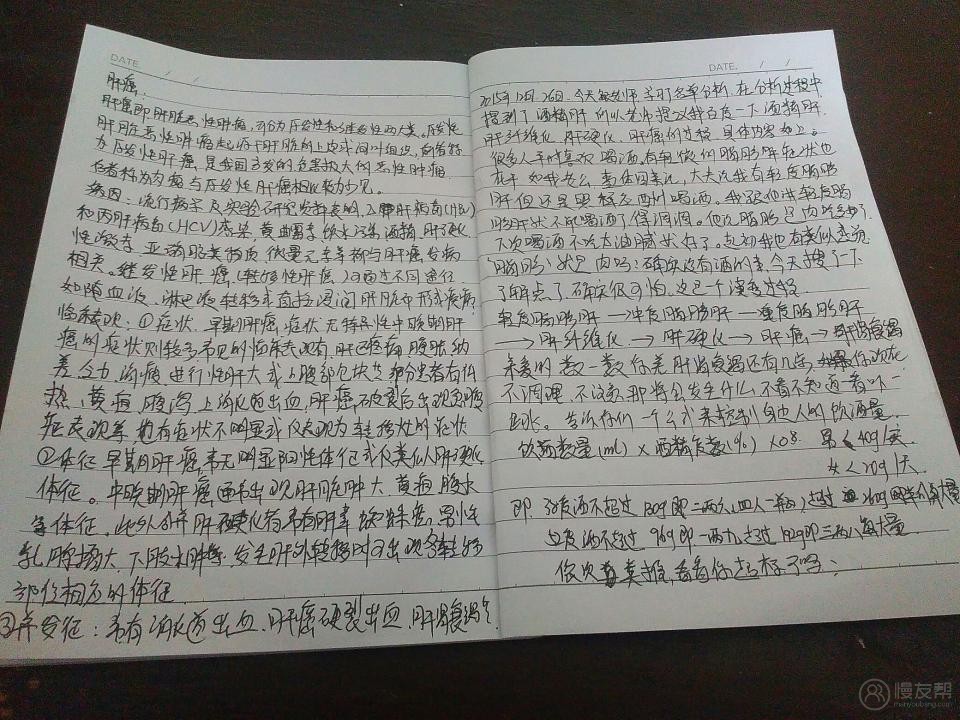 DATE / /
肝癌:
肝癌即肝脏恶性肿瘤,可分为原发性和继发性两大类。原发性
肝脏恶性肿瘤起源于肝脏的上皮或间叶组织,前者称
为原发性肝癌,是我国高发的,危害极大的恶性肿瘤
后者称为肉瘤,与原发性肝癌相比较为少见。
病因:流行病学及实验研究资料表明,乙型肝病毒(HBV)
和丙肝病毒(HCV)感染,黄曲霉素,饮水污染,酒精,肝硬化
性激素,亚硝胺类物质,微量元素等都与肝癌发病
相关。继发性肝癌(转移性肝癌)可通过不同途径
如随血液、淋巴液转移或直接浸润肝脏而形成疾病
临床表现:①症状,早期肝癌,症状无特异性,中晚期肝
癌的症状则较多,常见的临床表现有肝区疼痛,腹胀,纳
差,乏力,消瘦,进行性肝大或上腹部包块等,部分患者有低
热、黄疸、腹泻、上消化道出血,肝癌破裂后出现急腹
症表现等,也有症状不明显或仅表现为转移灶的症状
②体征,早期肝癌,常无明显阳性体征或仅类似肝硬化
体征。中晚期肝癌通常出现肝脏肿大、黄疸、腹水
等体征,此外合并肝硬化者常有肝掌,蜘蛛痣,男性
乳腺增大,下肢水肿等,发生肝外转移时可出现各转移
部位相应的体征
③并发症:常有消化道出血,肝癌破裂出血,肝肾衰竭等
DATE. / /
2015年12月26日,今天 学习 分析,在分析过程中
提到了酒精肝,所以老师提议我百度一下酒精肝
肝纤维化,肝硬化,肝癌的过程,具体内容如上。
很多人平时喜欢喝酒,有朋友们脂肪肝轻状也
在于 如我老公,查体回来说,大夫说我有轻度脂肪
肝,但还是照样 喝酒。我跟他讲轻度脂
肪肝就不能喝酒了得调调。他说脂肪是肉吃多了
下次喝酒不吃太油腻就好了。起初我也有类似想法
(脂肪)就是肉吗?确实没有酒的事,今天搜了一下
了解点了,确实很可怕,这是一个演变过程
轻度脂肪肝→中度脂肪肝→重度脂肪肝
→肝纤维化→肝硬化→肝癌→肝肾衰竭
亲爱的数一数你差肝肾衰竭还有几步,你现在
不调理,不改变,那将会发生什么,不看不知道一看吓一
跳。告诉你们一个公式来控制自己人的饮酒量
饮酒数量(mL)×酒精度数(%)×0.8 男<40g/天
女<20g/天
即
依次类推,看看你超标了吗?
慢友帮
manyoubang.com